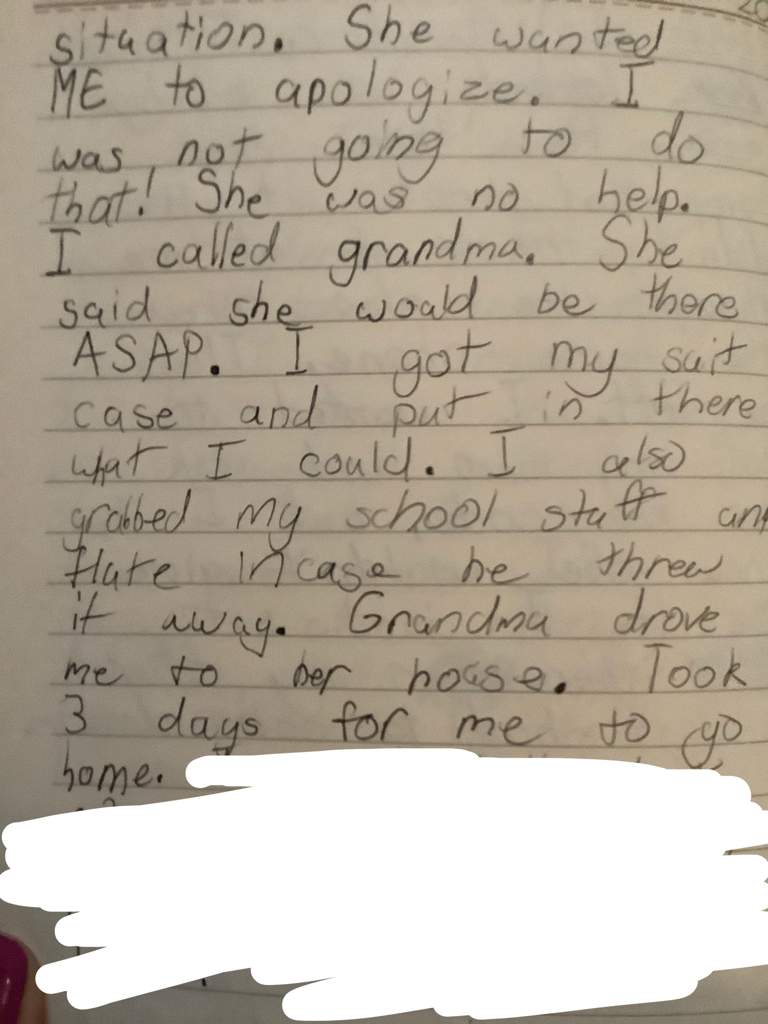 situation. She wanted
ME to apologize. I
was not going to do
that! She was no help.
I called grandma. She
said she would be there
ASAP. I got my suit
case and put in there
what I could. I also
grabbed my school stuff an
flute incase he threw
it away. Grandma drove
me to her house. Took
3 days for me to go
home.